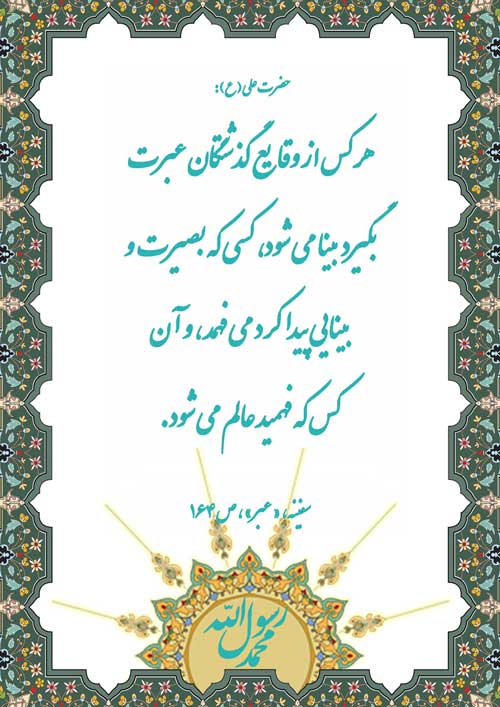 حضرت علی (ع):
هر کس از وقایع گذشتگان عبرت
بگیرد بینا می شود، کسی که بصیرت و
بینایی پیدا کرد می فهمد، و آن
کس که فهمید عالم می شود.
سفینه، «عبر»، ص ۱۶۴
محمد رسول الله